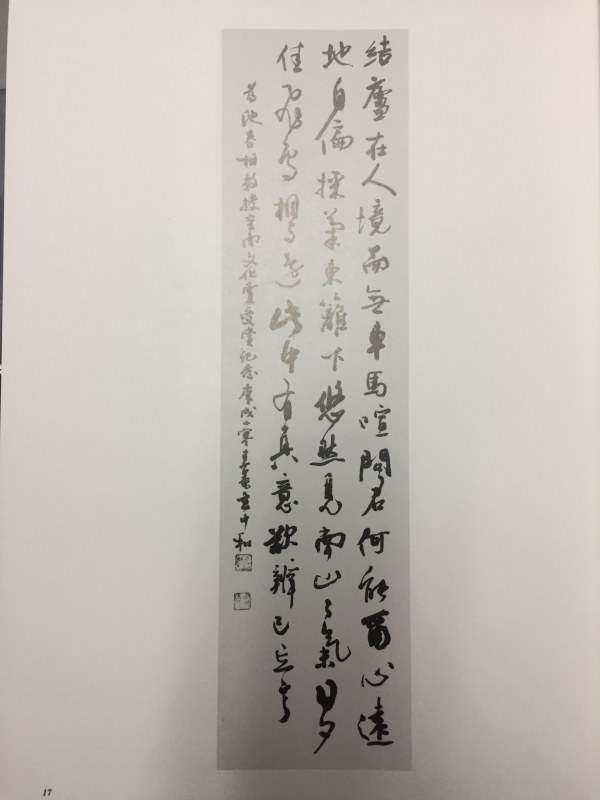 結廬在人境而無車馬喧問君何能爾心遠
地自偏採菊東籬下悠然見南山〻氣日夕
佳飛鳥相与還此中有真意欲辨已忘言
為池春相教授南文化賞受賞紀念庚戌小寒中和
17